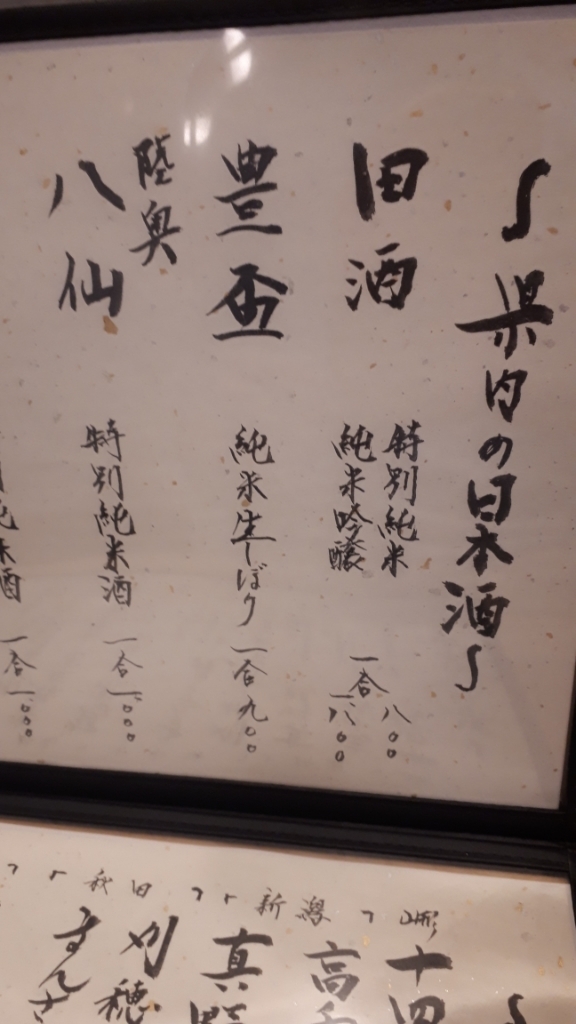 〜県内の日本酒〜
田酒
特別純米
純米吟醸
一合
八〇〇
一、八〇〇
豊盃
純米生しぼり
一合 九〇〇
陸奥
八仙
特別純米酒
一合 一、〇〇〇
純米酒
一合 一、〇〇〇
山形」
十四
「新潟」
高
真
「秋田」
刈穂
まんさ